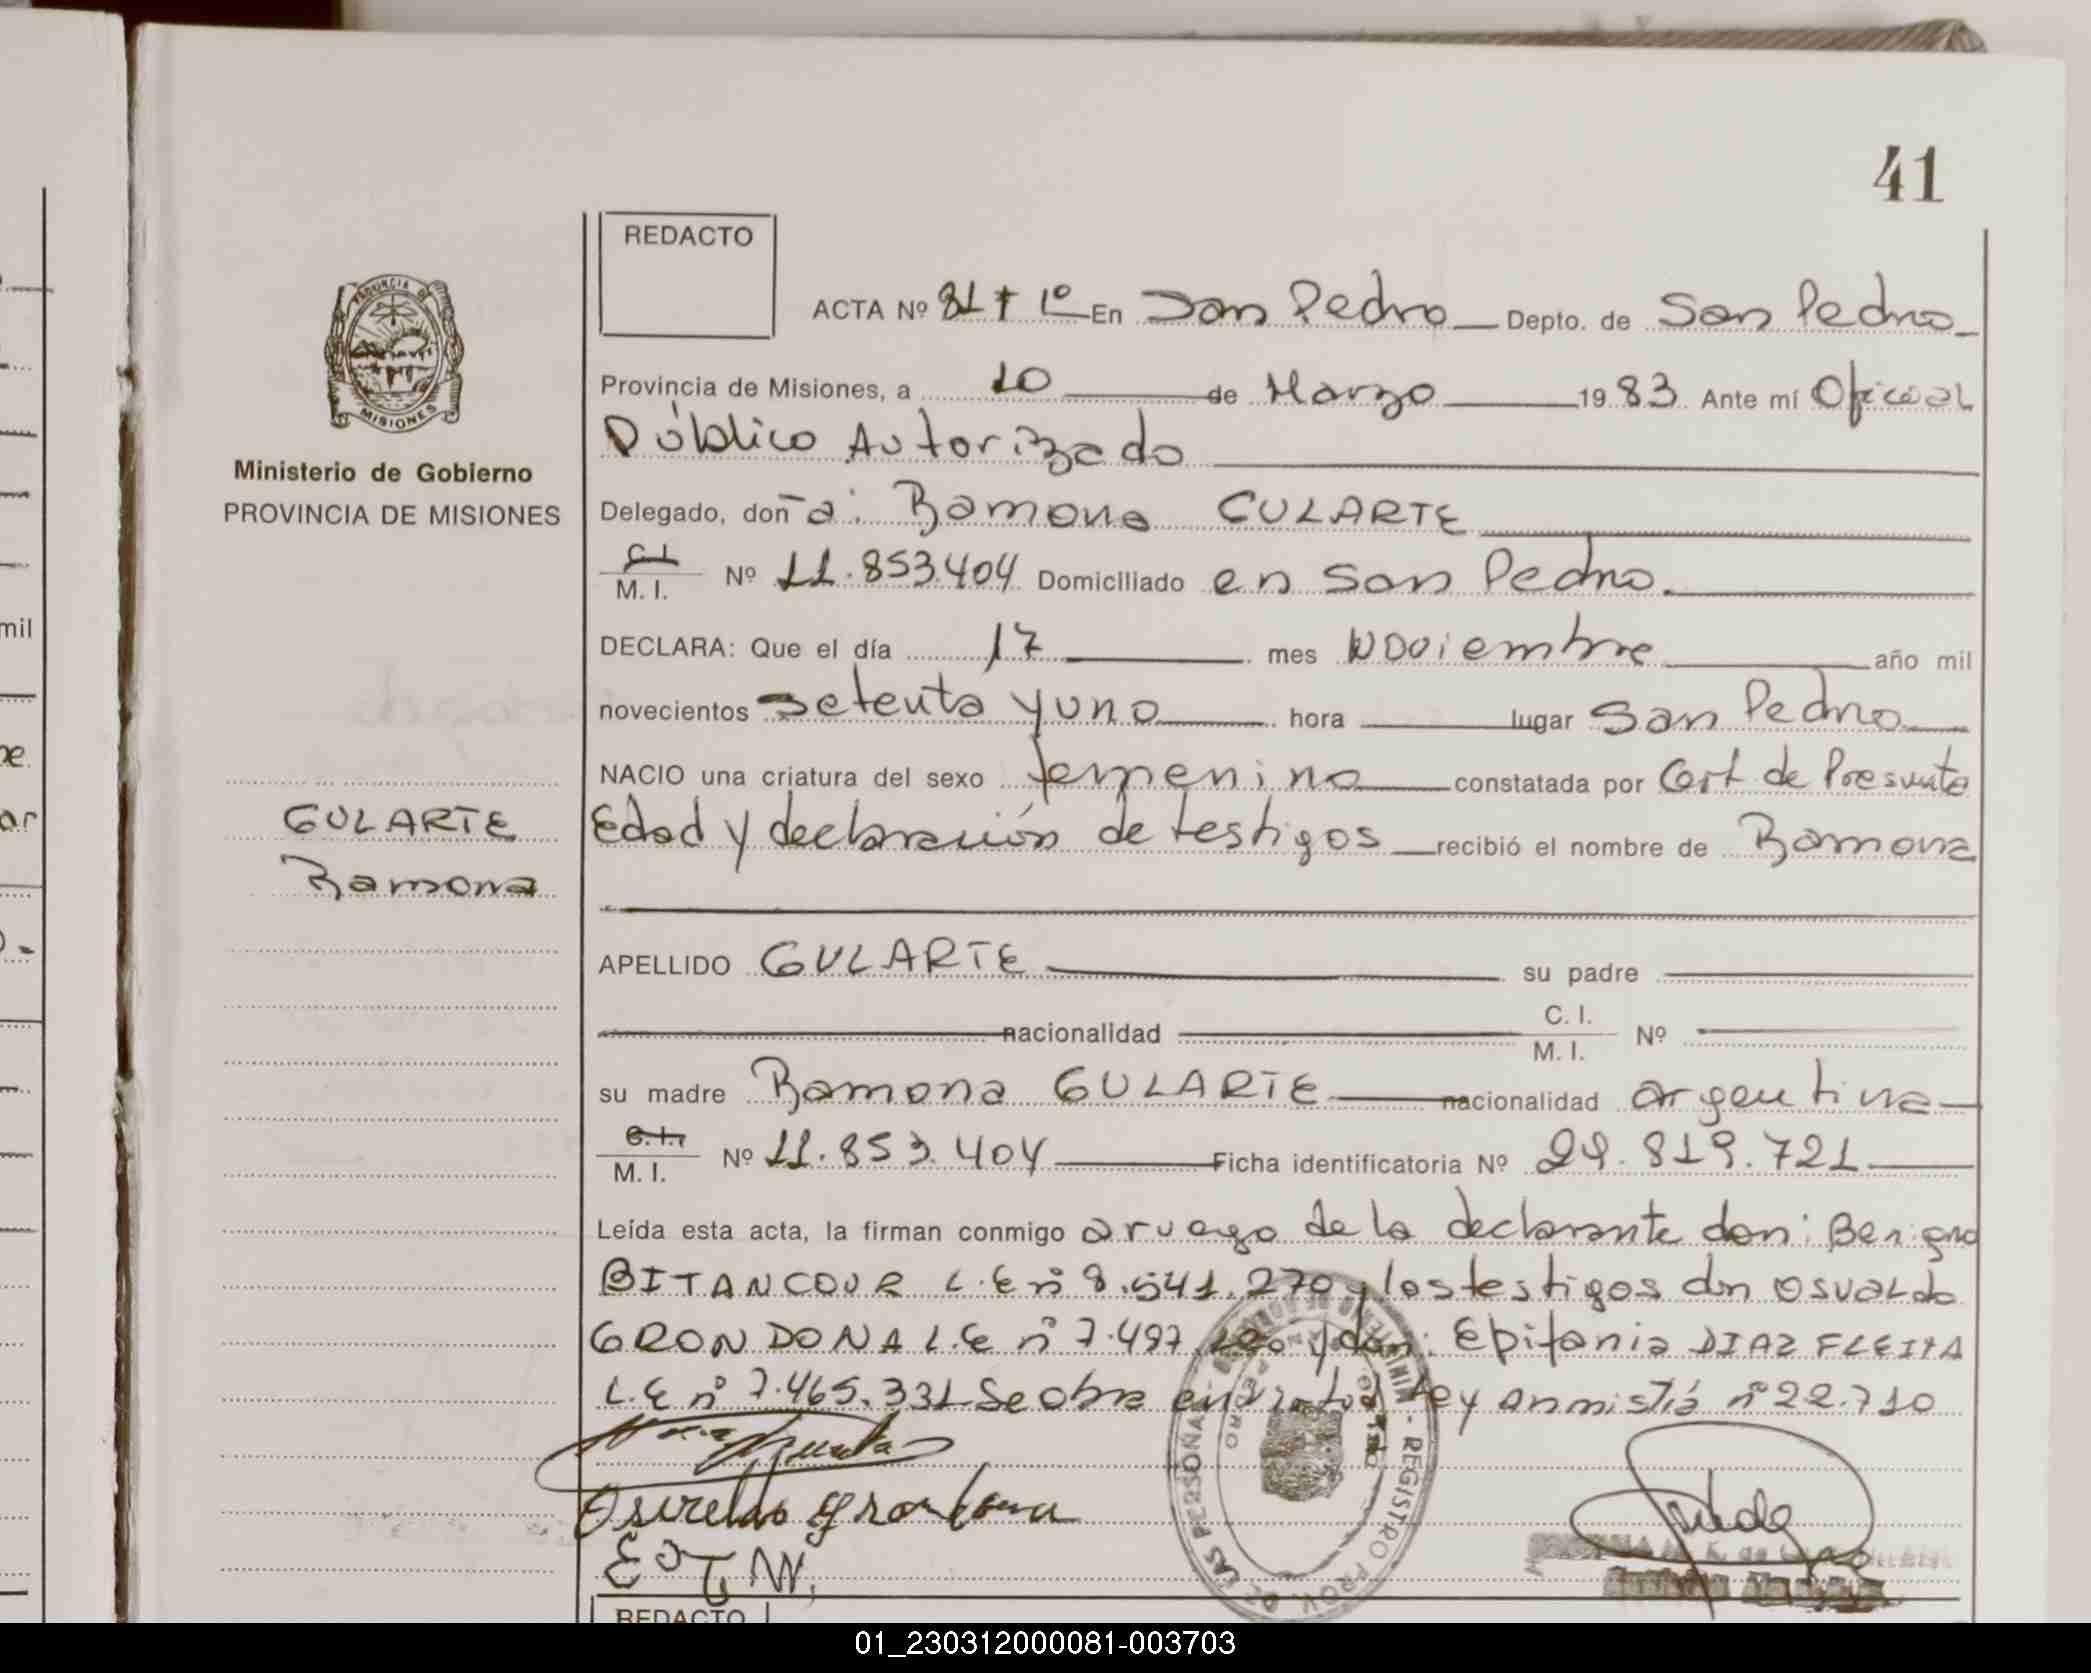 41
REDACTO
ACTA Nº 81 t 1º En San Pedro Depto. de San Pedro
Provincia de Misiones, a 10 de Marzo 1983 Ante mí Oficial
Público Autorizado
Delegado, don ̄a: Ramona GULARTE
C.I.
M. I. Nº 11.853.404 Domiciliado en San Pedro.
DECLARA: Que el día 17 mes Noviembre año mil
novecientos setenta y uno hora lugar San Pedro
NACIO una criatura del sexo femenino constatada por Cert de Presunta
Edad y declaración de testigos recibió el nombre de Ramona
APELLIDO GULARTE su padre
nacionalidad C. I.
M. I. Nº
su madre Ramona GULARTE nacionalidad argentina
C.I.
M. I. Nº 11.853.404 Ficha identificatoria Nº 29.819.721
Leída esta acta, la firman conmigo a ruego de la declarante don: Benigno
BITANCOUR L.E nº 8.541.270 y los testigos don Osvaldo
GRONDONA L.E nº 7.497 y don: Epifania DIAZ FLEITA
L.E nº 7.465.331 Se obra en virtud Ley anmistiá nº 22.710
Osvaldo Grondona
PROVINCIA DE
MISIONES
Ministerio de Gobierno
PROVINCIA DE MISIONES
GULARTE
Ramona
REGISTRO PROV. DE LAS PERSONAS
REDACTO
mil
01_230312000081-003703